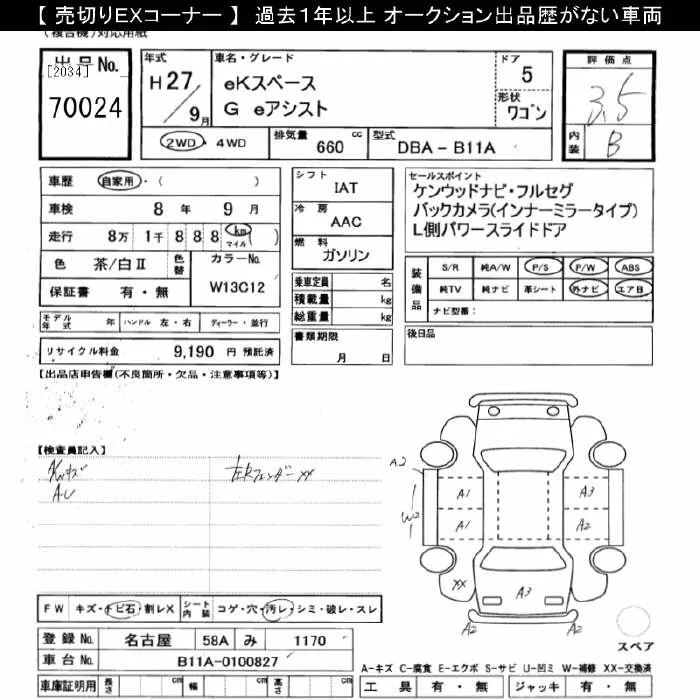 【 売切りEXコーナー 】 過去1年以上 オークション出品歴がない車両
(複合機)対応用紙
出品No.
[2034]
70024
年式
H27/9月
車名・グレード
eKスペース
G eアシスト
ドア
5
形状
ワゴン
評価点
3.5
内装
B
2WD ・ 4WD
排気量 660 cc
型式 DBA - B11A
車歴 自家用・( )
車検 8 年 9 月
走行 8万 1千 8 8 8 km マイル ( )
色 茶/白II 色替
カラーNo. W13C12
保証書 有・無
モデル年式 年 ハンドル 左・右 ディーラー・並行
リサイクル料金 9,190 円 預託済
シフト
IAT
冷房
AAC
燃料
ガソリン
乗車定員 名
積載量 kg
総重量 kg
書類期限
月 日
セールスポイント
ケンウッドナビ・フルセグ
バックカメラ(インナーミラータイプ)
L側パワースライドドア
装備品
S/R 純A/W P/S P/W ABS
純TV 純ナビ 革シート 外ナビ エアB
ナビ型番:
後日品
【出品店申告欄(不良箇所・欠品・注意事項等)】
【検査員記入】
AU
XX
A2
W2
A1
A3
A1
A2
XX
A3
A2
A2
スペア
FW キズ・トビ石・割レX
シート内装 コゲ・穴・汚レ・シミ・破レ・スレ
登録No. 名古屋 58A み 1170
車台No. B11A-0100827
車庫証明用 長さ cm 幅 cm 高さ cm
A-キズ C-腐食 E-エクボ S-サビ U-凹ミ W-補修 XX-交換済
工具 有・無 ジャッキ 有・無